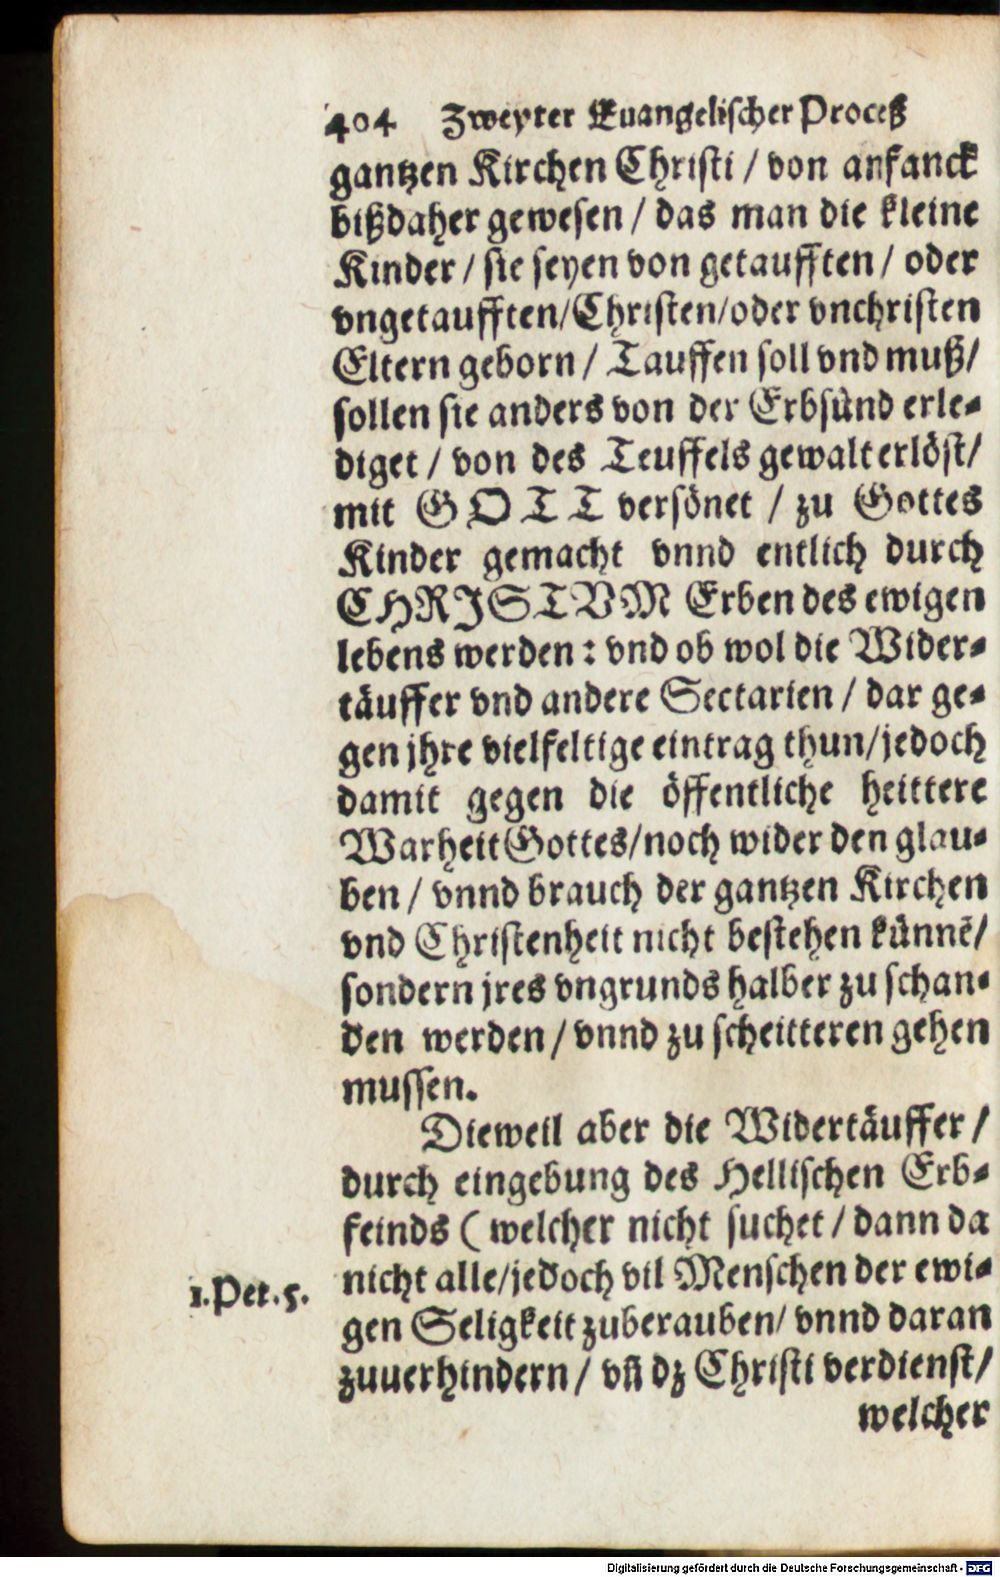 404 Zweyter Euangelischer Proceß
gantzen Kirchen Christi / von anfanck
bißdaher gewesen / das man die kleine
Kinder / sie seyen von getaufften / oder
vngetaufften/Christen/oder vnchristen
Eltern geborn / Tauffen soll vnd muß/
sollen sie anders von der Erbsünd erle-
diget / von des Teuffels gewalt erlöst/
mit GOTT versönet / zu Gottes
Kinder gemacht vnnd entlich durch
CHRISTVM Erben des ewigen
lebens werden: vnd ob wol die Wider-
täuffer vnd andere Sectarien / dar ge-
gen jhre vielfeltige eintrag thun/jedoch
damit gegen die öffentliche heittere
Warheit Gottes/noch wider den glau-
ben / vnnd brauch der gantzen Kirchen
vnd Christenheit nicht bestehen künnē/
sondern jres vngrunds halber zu schan-
den werden / vnnd zu scheitteren gehen
mussen.
Dieweil aber die Widertäuffer /
durch eingebung des Hellischen Erb-
feinds ( welcher nicht suchet / dann da
1.Pet.5. nicht alle/jedoch vil Menschen der ewi-
gen Seligkeit zuberauben/ vnnd daran
zuuerhindern / vñ dz Christi verdienst/
welcher
Digitalisierung gefördert durch die Deutsche Forschungsgemeinschaft - DFG